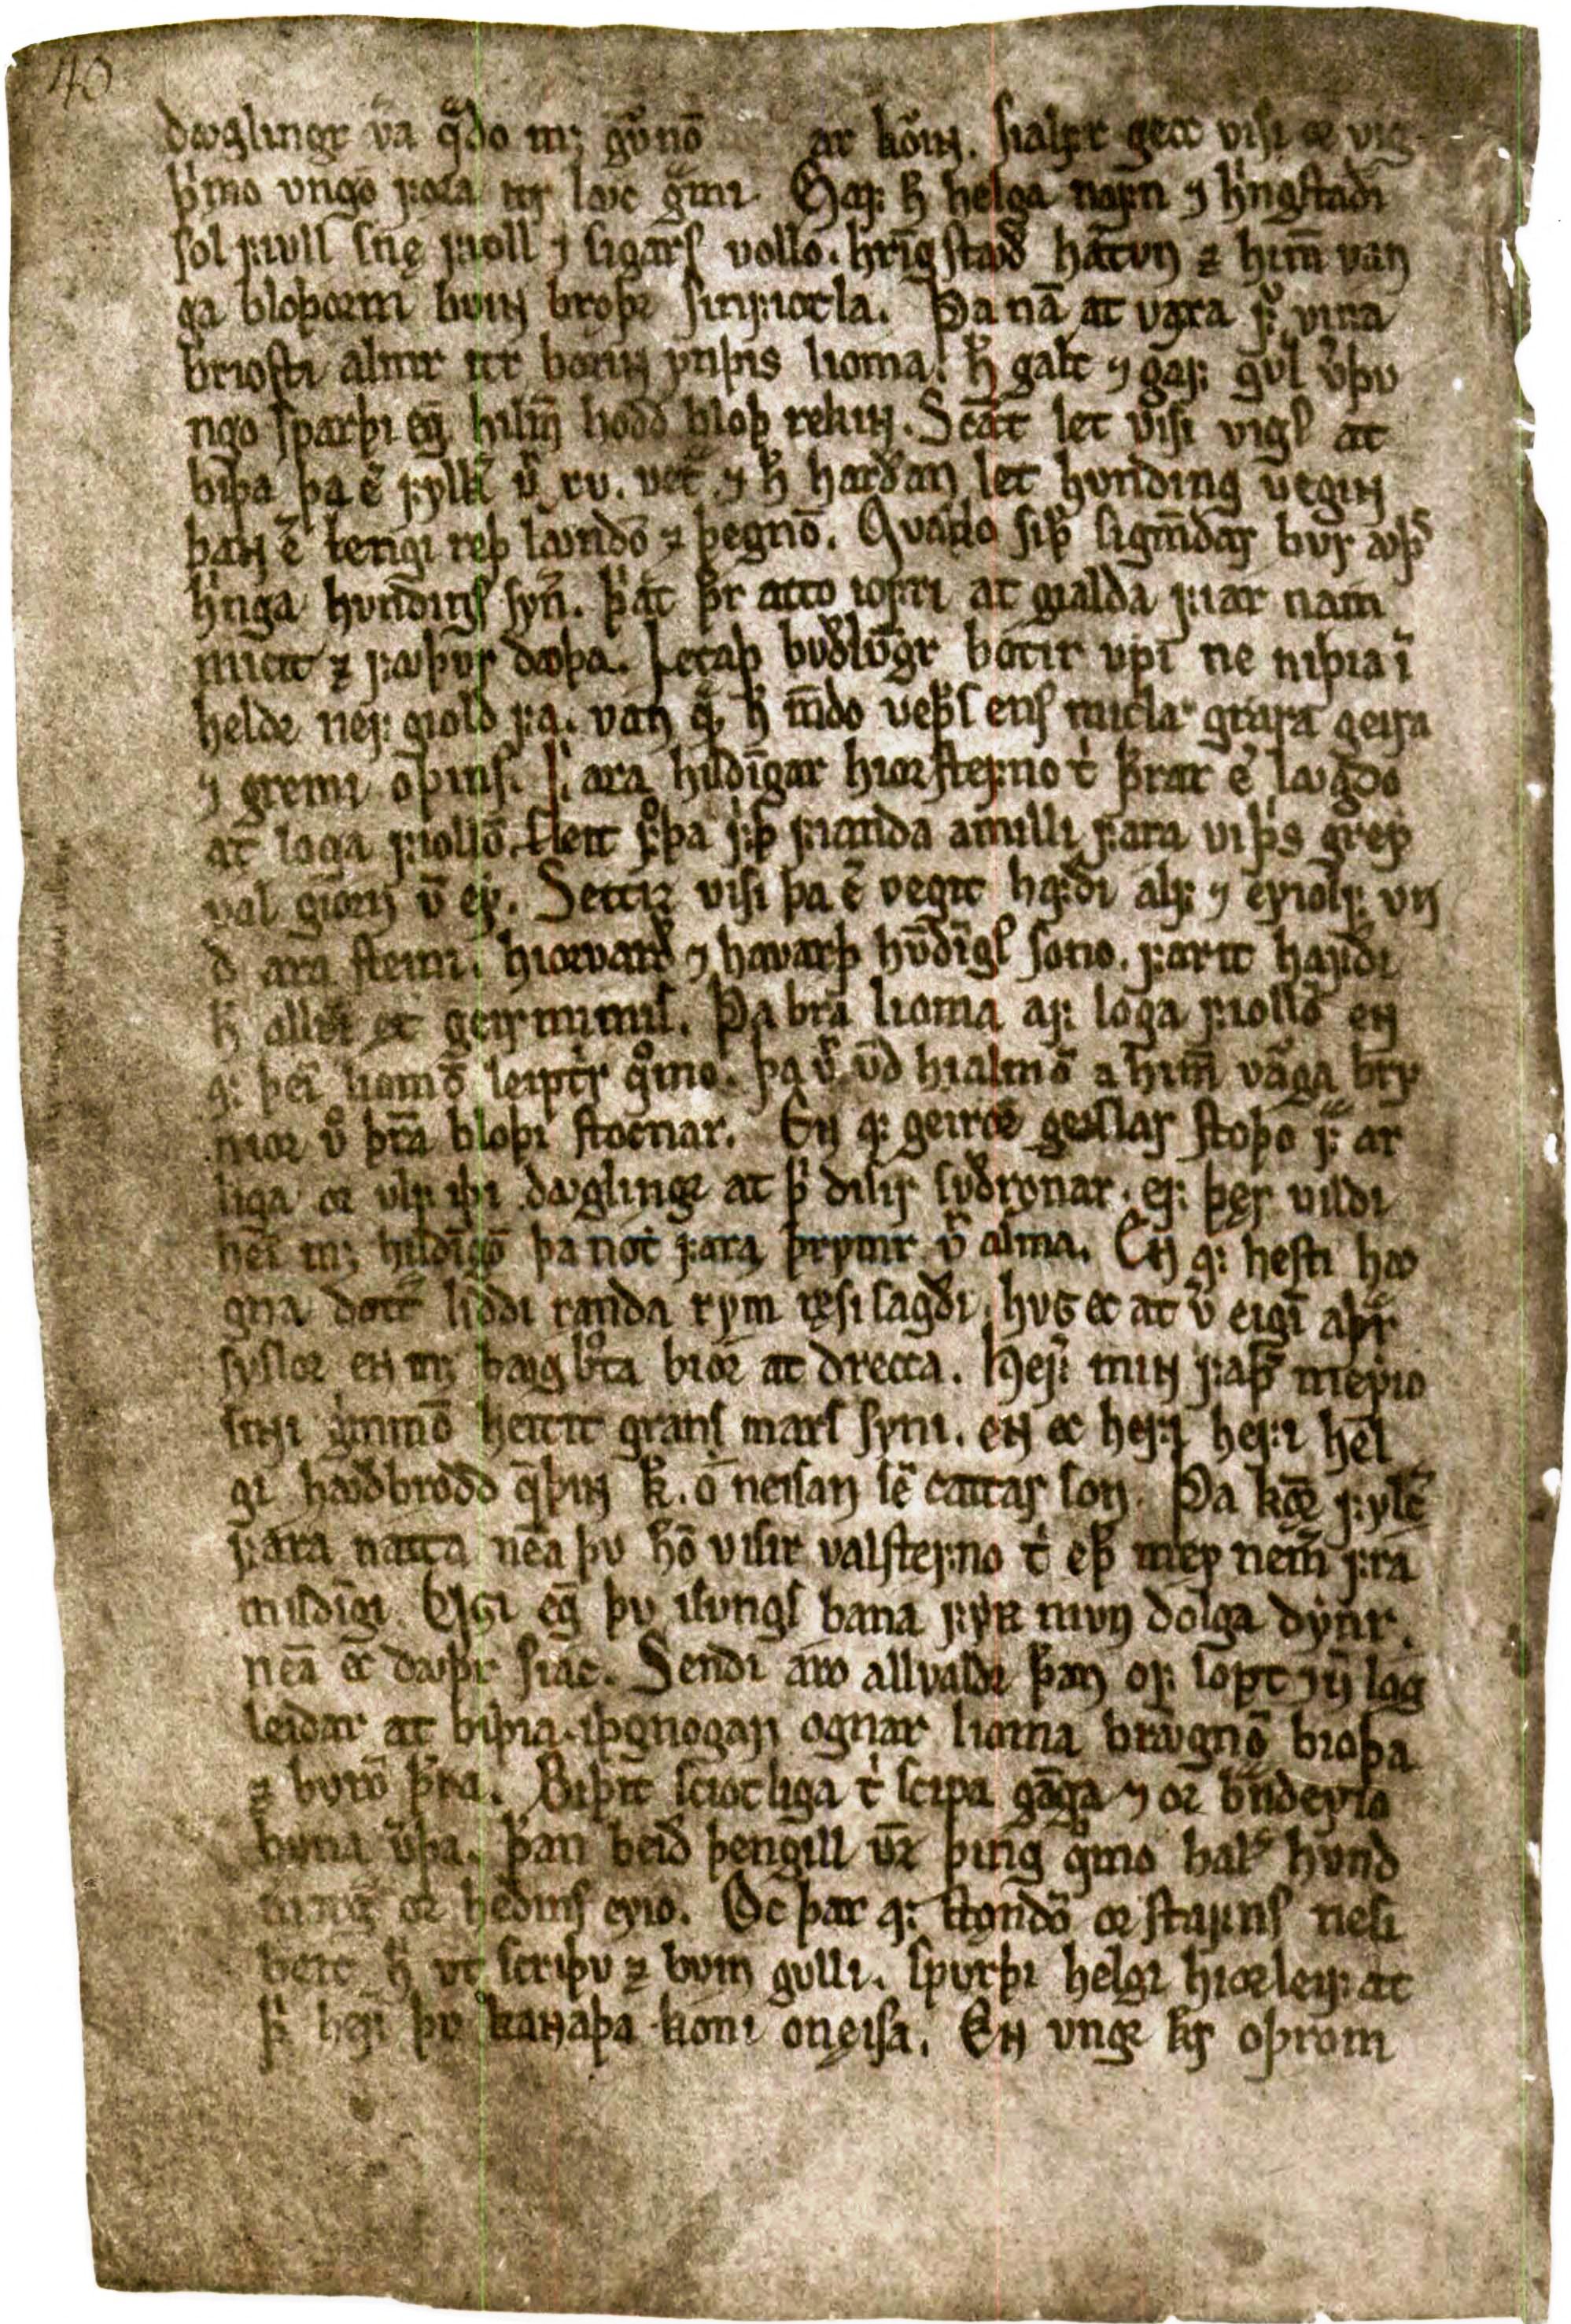 40
dꜹglingr v͛a q̄ðo m; gūno ar kōın. sıalꝼr gecc vısı oꝛ vıg
þͥmo vngō ꝼǫra ıtr lꜹc gͣmı. Gaꝼ h̄ helga naꝼn ⁊ hͥngſtaðı
ſol ꝼıoll ſnę ꝼıoll ⁊ ſıgarſ vollo. hrīgſtꜹð hātvn ⁊ hım̄ van
ga bloþorm bvın brǫþꝛ ſınꝼıotla. Þa nā at vaxa ꝼ͛ vına
brıoſtı almr ıtr borıɴ ynþıs lıoma. h̄ galt ⁊ gaꝼ gvll v͛þv
ngo ſparþı eıḡ hılm̄ hodd bloþ rekıɴ. Scāt let vıſı vıgſ at
bıþa þa e͛ ꝼylk͛ v͛ xv. vet͛ ⁊ h̄ harðan let hvndıng vegıɴ
þaɴ e͛ lengı reþ lꜹndō ⁊ þegnō. Qvaddo ſıþ͛ ſıgm̄dar bvr ꜹþ͛
hͥnga hvndıngſ ſyn͛. þͥat þ͛r atto ıoꝼrı at gıalda ꝼıar nam
mıcıt ⁊ ꝼꜹþvr dꜹþa. Letaþ bvðlūgr botır vpı ne nıþıa ī
heldꝛ neꝼ gıold ꝼa. van q̄ h̄ m̄do veþ͛ſ enſ mıcla grara geıra
⁊ gremı oþınſ. Fara hıldīgar hıoꝛſteꝼno tͥ þ͛rar e͛ lꜹgdo
at loga ꝼıollō. ſleıt ꝼ͛þa ꝼͥþ ꝼıanda amıllı ꝼara vıþͥs grey
val gıorn v̄ ey. Settız vıſı þa e͛ vegıt haꝼdı alꝼ ⁊ eyıolꝼ vn
d ara ſteını. hıoꝛvarþ ⁊ havarþ hv̄dīgſ ſono. ꝼarıt haꝼðı
h̄ allrı ętt geırmımıſ. Þa bra lıoma aꝼ loga ꝼıollō en
aꝼ þeī lıomō leıptͥr qͦmo. þa v͛ v̄d hıalmō a hım̄ vāga bry
nıoꝛ vͦ þr͛a bloþı ſtocnar. En aꝼ geırō geıſlar ſtoþo. Fͣ ar
lıga oꝛ vlꝼ ıþı dꜹglıngꝛ at þͥ dıſır ſvðrǫnar. eꝼ þęr vıldı
heī m; hıldīgō þa nott ꝼara þrymr v͛ alma. En aꝼ heſtı hꜹ
gna dott͛ lıddı randa rym ręſı ſagðı. hvg ec at v͛ eıgī aþrar
ſyſloꝛ en m; bꜹg bͦta bıoꝛ at drecca. Heꝼ͛ mın ꝼaþ͛ meyıo
ſınnı gͥmmō heıtıt granſ marſ ſynı. en ec heꝼı helgı
hꜹðbrodd qͣþın k̄. o neıſan ſē cattar ſon. Þa kǭr ꝼylc͛
ꝼara natta nēa þv hō vıſır valſteꝼno tͥ eþ͛ mey nem͛ ꝼra
mıldīgı. Vggı eıḡ þv ıſvngſ bana ꝼyꝛꝛ mvn dolga dynr.
nēa ec dꜹþr ſıac. Sendı áro allvaldꝛ þͣan oꝼ lopt ⁊ v̄ lꜹg
leıdar at bıþıa. ıþgnogan ognar lıoma brꜹgnō bıoþa
⁊ bvrō þ͛ra. Bıþıt ſcıotlıga tͥ ſcıpa gāga ⁊ oꝛ br͛ndeyıo
bvna v͛þa. þͣan beıd þengıll v̄z þıng qͦmo hal͛ hvnd
margͥ oꝛ heðınſ eyıo. Oc þar aꝼ ſtrǫndō oꝛ ſtaꝼnſ neſı
beıt h̄ ut ſcrıþv ⁊ bvın gvllı. ſpvrþı helgı hıoꝛleıꝼ at
þͥ heꝼ͛ þv kaɴaþa konı onęıſa. En vngꝛ kgͬ oþrom